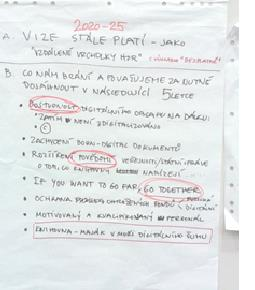 2020-25
A. VIZE STÁLE PLATÍ = JAKO
"VZDÁLENÉ VRCHOLKY HOR"
B. CO NÁM BRÁNÍ A POVAŽUJEME ZA NUTNÉ
DOSÁHNOUT V NÁSLEDUJÍCÍ 5LETCE
• DOSTUPNOST DIGITÁLNÍHO OBSAHU NA DÁLKU
• ZATÍM NENÍ DIGITALIZOVÁNO
• ©
• ZACHYCENÍ BORN-DIGITAL DOKUMENTŮ
• ROZŠÍŘENÍ POVĚDOMÍ VEŘEJNOSTI/STÁTNÍ SPRÁVE
O TOM, CO KNIHOVNY NABÍZEJÍ
• IF YOU WANT TO GO FAR, GO TOGETHER
• OCHRANA FONDŮ
• MOTIVOVANÝ A KVALIFIKOVANÝ PERSONÁL
KNIHOVNA - MAJÁK V MOŘI DIGITÁLNÍHO ŠUMU